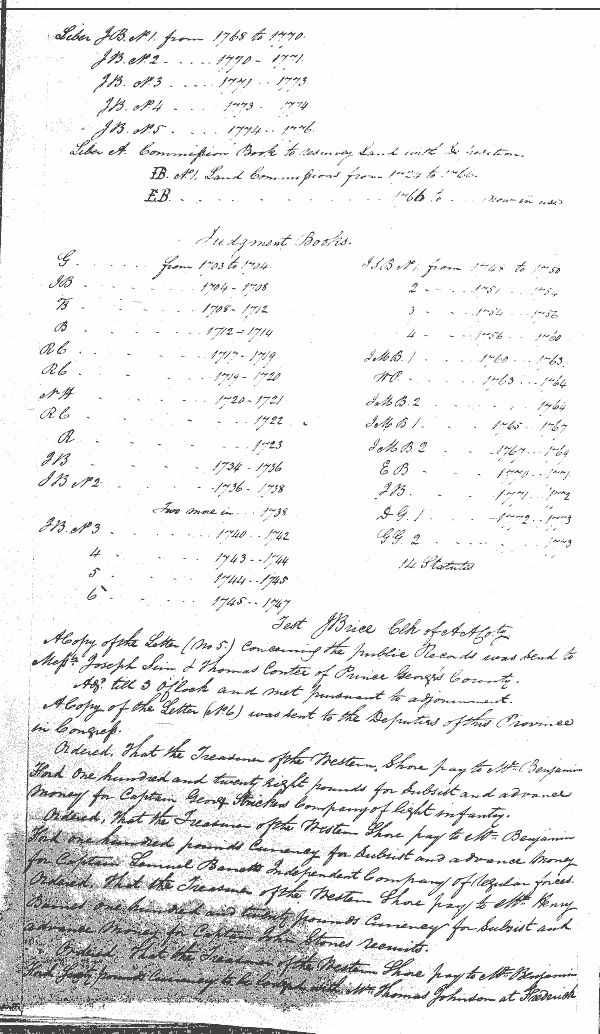 Liber J.B. No 1. from 1768 to 1770.
J.B. No 2 - - - - 1770 - 1771
J.B. No 3 - - - - 1771 - 1773
J.B. No 4 - - - - 1773 - 1774
J.B. No 5 - - - - 1774 - 1776
Liber A. Commission Book to resurvey Land with
IB. No 1. Land Commissions from 1724 to 1766.
E.B. - - - - - - - - 1766 to - - - now in use
Judgment Books.
G - - - - from 1703 to 1704
IB - - - - 1704 - 1708
B - - - - 1708 - 1712
B - - - - 1712 - 1714
RC - - - - 1717 - 1719
RC - - - - 1719 - 1720
- - - - 1720 - 1721
RC - - - - 1722
R - - - - 1723
IB - - - - 1734 - 1736
IB No 2 - - - - 1736 - 1738
Two more in - - - 1738
IB. No 3 - - - - 1740 - 1742
4 - - - - 1743 - 1744
5 - - - - 1744 - 1745
6 - - - - 1745 - 1747
I.S.B No 1. from 1748 to 1750
2 - - - 1751 - - 1754
3 - - - 1754 - - 1756
4 - - - 1756 - - 1760
IMB. 1 - - - 1760 - - 1763
WP. - - - 1763 - - 1764
IMB. 2 - - - 1764
IMB 1 - - - 1765 - - 1767
IMB 2 - - - 1767 - - 1769
EB - - - 1770 - - 1771
IB. - - - 1771 - - 1772
D.G. 1 - - - 1772 - - 1773
GG. 2 - - - 1773
14 Statutes
Test J Brice Clk of AA Coty
A Copy of the Letter (No 5) concerning the public Records was send to
Messrs. Joseph Sim & Thomas Contee of Prince Georges County.
Adjd. till 3 O'Clock and met pursuant to adjournment.
A Copy of the Letter (No 6) was sent to the Deputies of this Province
in Congress.
Ordered, That the Treasurer of the Western Shore pay to Mr. Benjamin
Hood One hundred and twenty eight pounds for Subsist and advance
Money for Captain George Strickers Company of light infantry.
Ordered, that the Treasurer of the Western Shore pay to Mr. Benjamin
Hood one hundred pounds Currency for Subsist and advance Money
for Captain Samuel Barretts Independent Company of regular forces.
Ordered, That the Treasurer of the Western Shore pay to Mr. Henry
Barnes one hundred and twenty pounds Currency for Subsist and
advance Money for Captain John Stones recruits.
Ordered, That the Treasurer of the Western Shore pay to Mr. Benjamin
Hood forty pounds Currency to be lodged with Mr. Thomas Johnson at Frederick